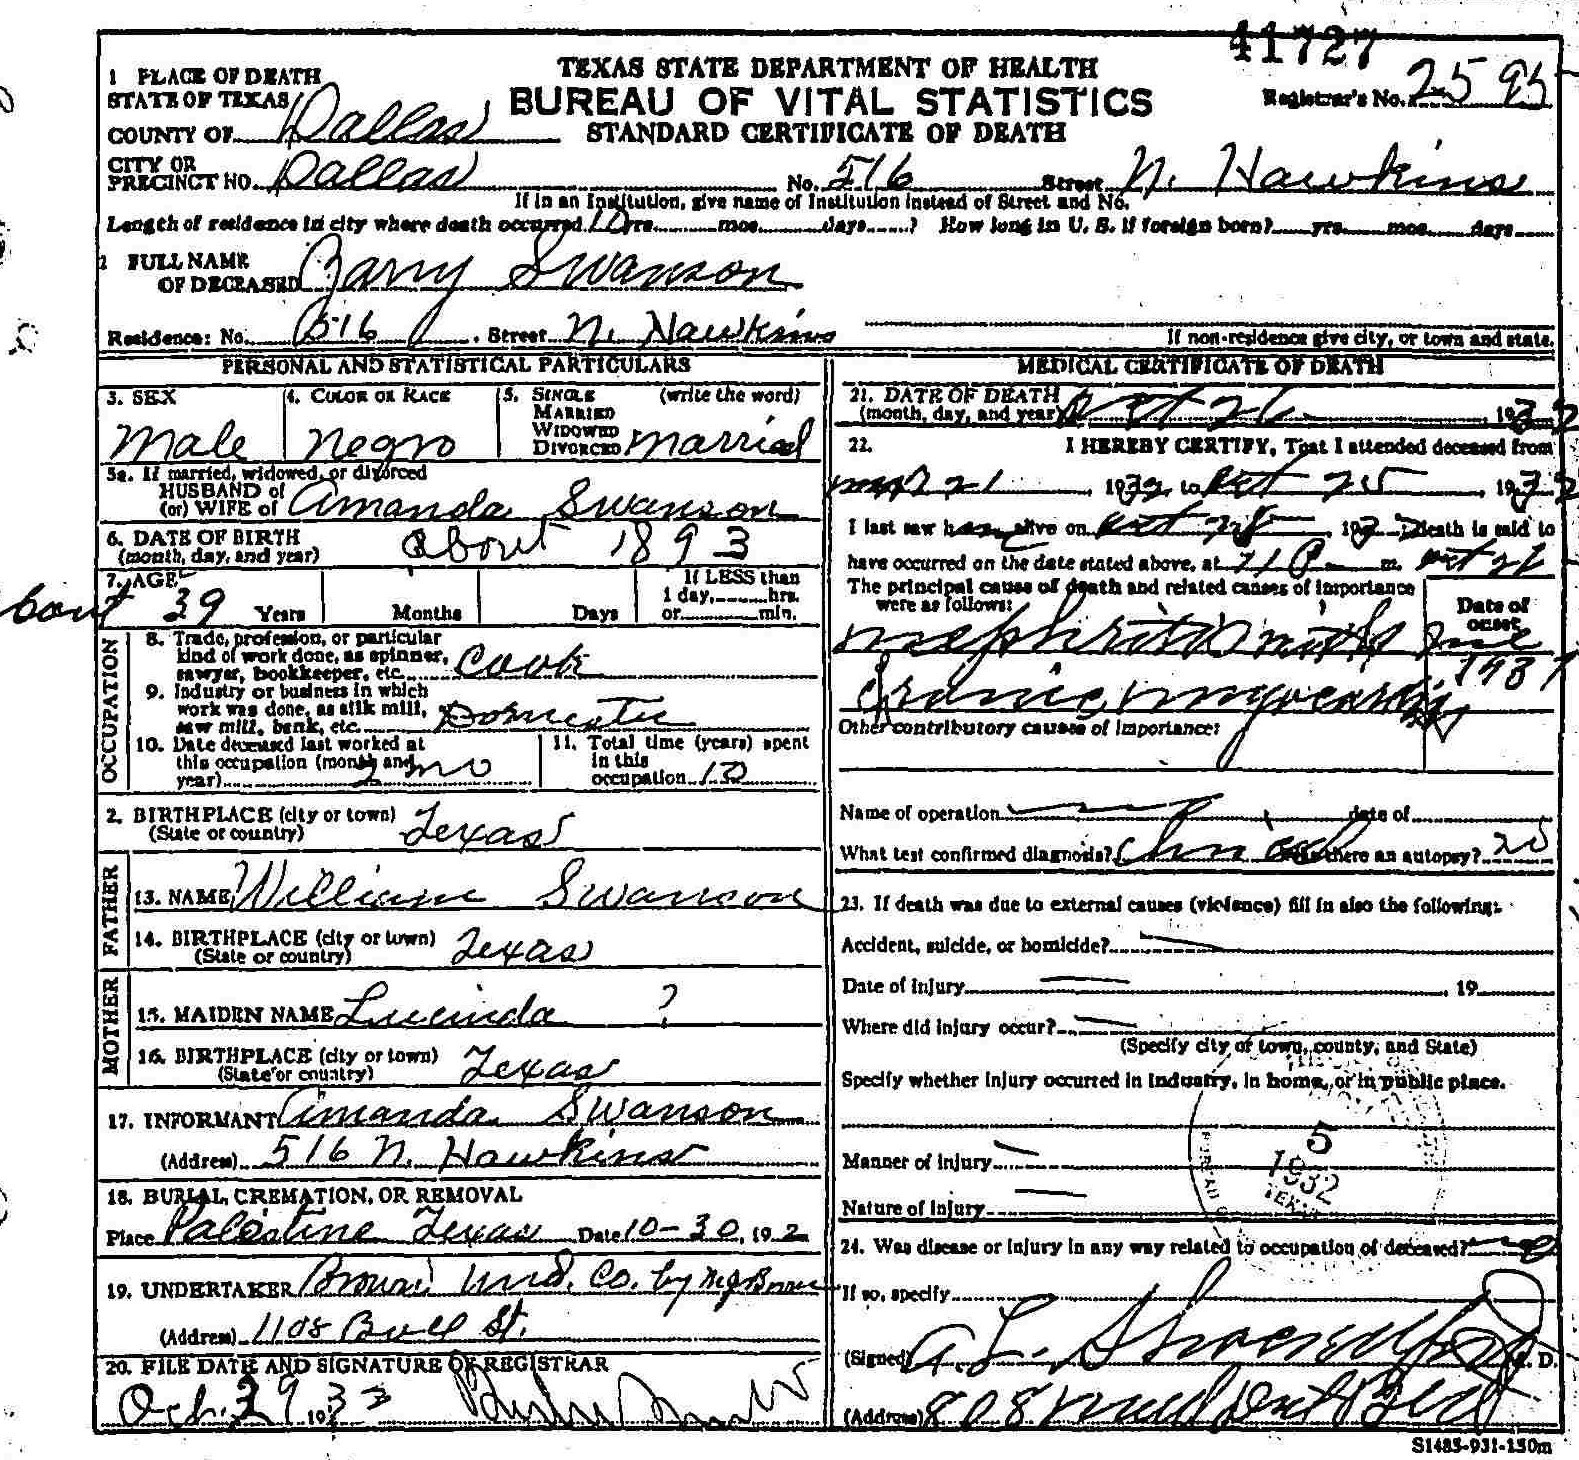 41727
1 PLACE OF DEATH
STATE OF TEXAS
COUNTY OF Dallas
TEXAS STATE DEPARTMENT OF HEALTH
BUREAU OF VITAL STATISTICS
STANDARD CERTIFICATE OF DEATH
Registrar's No. 2595
CITY OR
PRECINCT NO. Dallas No. 516 Street N. Hawkins
If in an Institution, give name of Institution instead of Street and No.
Length of residence in city where death occurred 10 yrs. mos. days ? How long in U. S. if foreign born? yrs. mos. days
2 FULL NAME
OF DECEASED Swanson
Residence: No. 516 Street N. Hawkins
If non-residence give city, or town and state.
PERSONAL AND STATISTICAL PARTICULARS
3. SEX 4. COLOR OR RACE 5. SINGLE (write the word)
MARRIED
WIDOWED
DIVORCED
Male Negro Married
5a. If married, widowed, or divorced
HUSBAND of
(or) WIFE of Amanda Swanson
6. DATE OF BIRTH
(month, day, and year) about 1893
7. AGE If LESS than
1 day, hrs.
about 39 Years Months Days or min.
OCCUPATION
8. Trade, profession, or particular
kind of work done, as spinner,
sawyer, bookkeeper, etc. Cook
9. Industry or business in which
work was done, as silk mill,
saw mill, bank, etc. Domestic
10. Date deceased last worked at
this occupation (month and
year) 2 mo
11. Total time (years) spent
in this
occupation 10
2. BIRTHPLACE (city or town)
(State or country) Texas
FATHER
13. NAME William Swanson
14. BIRTHPLACE (city or town)
(State or country) Texas
MOTHER
15. MAIDEN NAME Lucinda ?
16. BIRTHPLACE (city or town)
(State or country) Texas
17. INFORMANT Amanda Swanson
(Address) 516 N. Hawkins
18. BURIAL, CREMATION, OR REMOVAL
Place Palestine Texas Date 10-30, 192
19. UNDERTAKER Brown Und. Co. by
(Address) 1108 St.
20. FILE DATE AND SIGNATURE OF REGISTRAR
Oct. 29 193
MEDICAL CERTIFICATE OF DEATH
21. DATE OF DEATH
(month, day, and year) Oct 26 1932
22. I HEREBY CERTIFY, That I attended deceased from
21, 1932, to Oct 25, 1932
I last saw alive on Oct 25, 1932, death is said to
have occurred on the date stated above, at m. Oct 26
The principal cause of death and related causes of importance
were as follows:
Date of
onset
Nephritis
Chronic myocarditis
Other contributory causes of importance:
Name of operation date of
What test confirmed diagnosis? Clinical Was there an autopsy? no
23. If death was due to external causes (violence) fill in also the following:
Accident, suicide, or homicide?
Date of injury , 19
Where did injury occur?
(Specify city or town, county, and State)
Specify whether injury occurred in industry, in home, or in public place.
Manner of injury
Nature of injury
5
1932
24. Was disease or injury in any way related to occupation of deceased? no
If so, specify
(Signed) A. L. M. D.
(Address) 808
S1485-931-150m